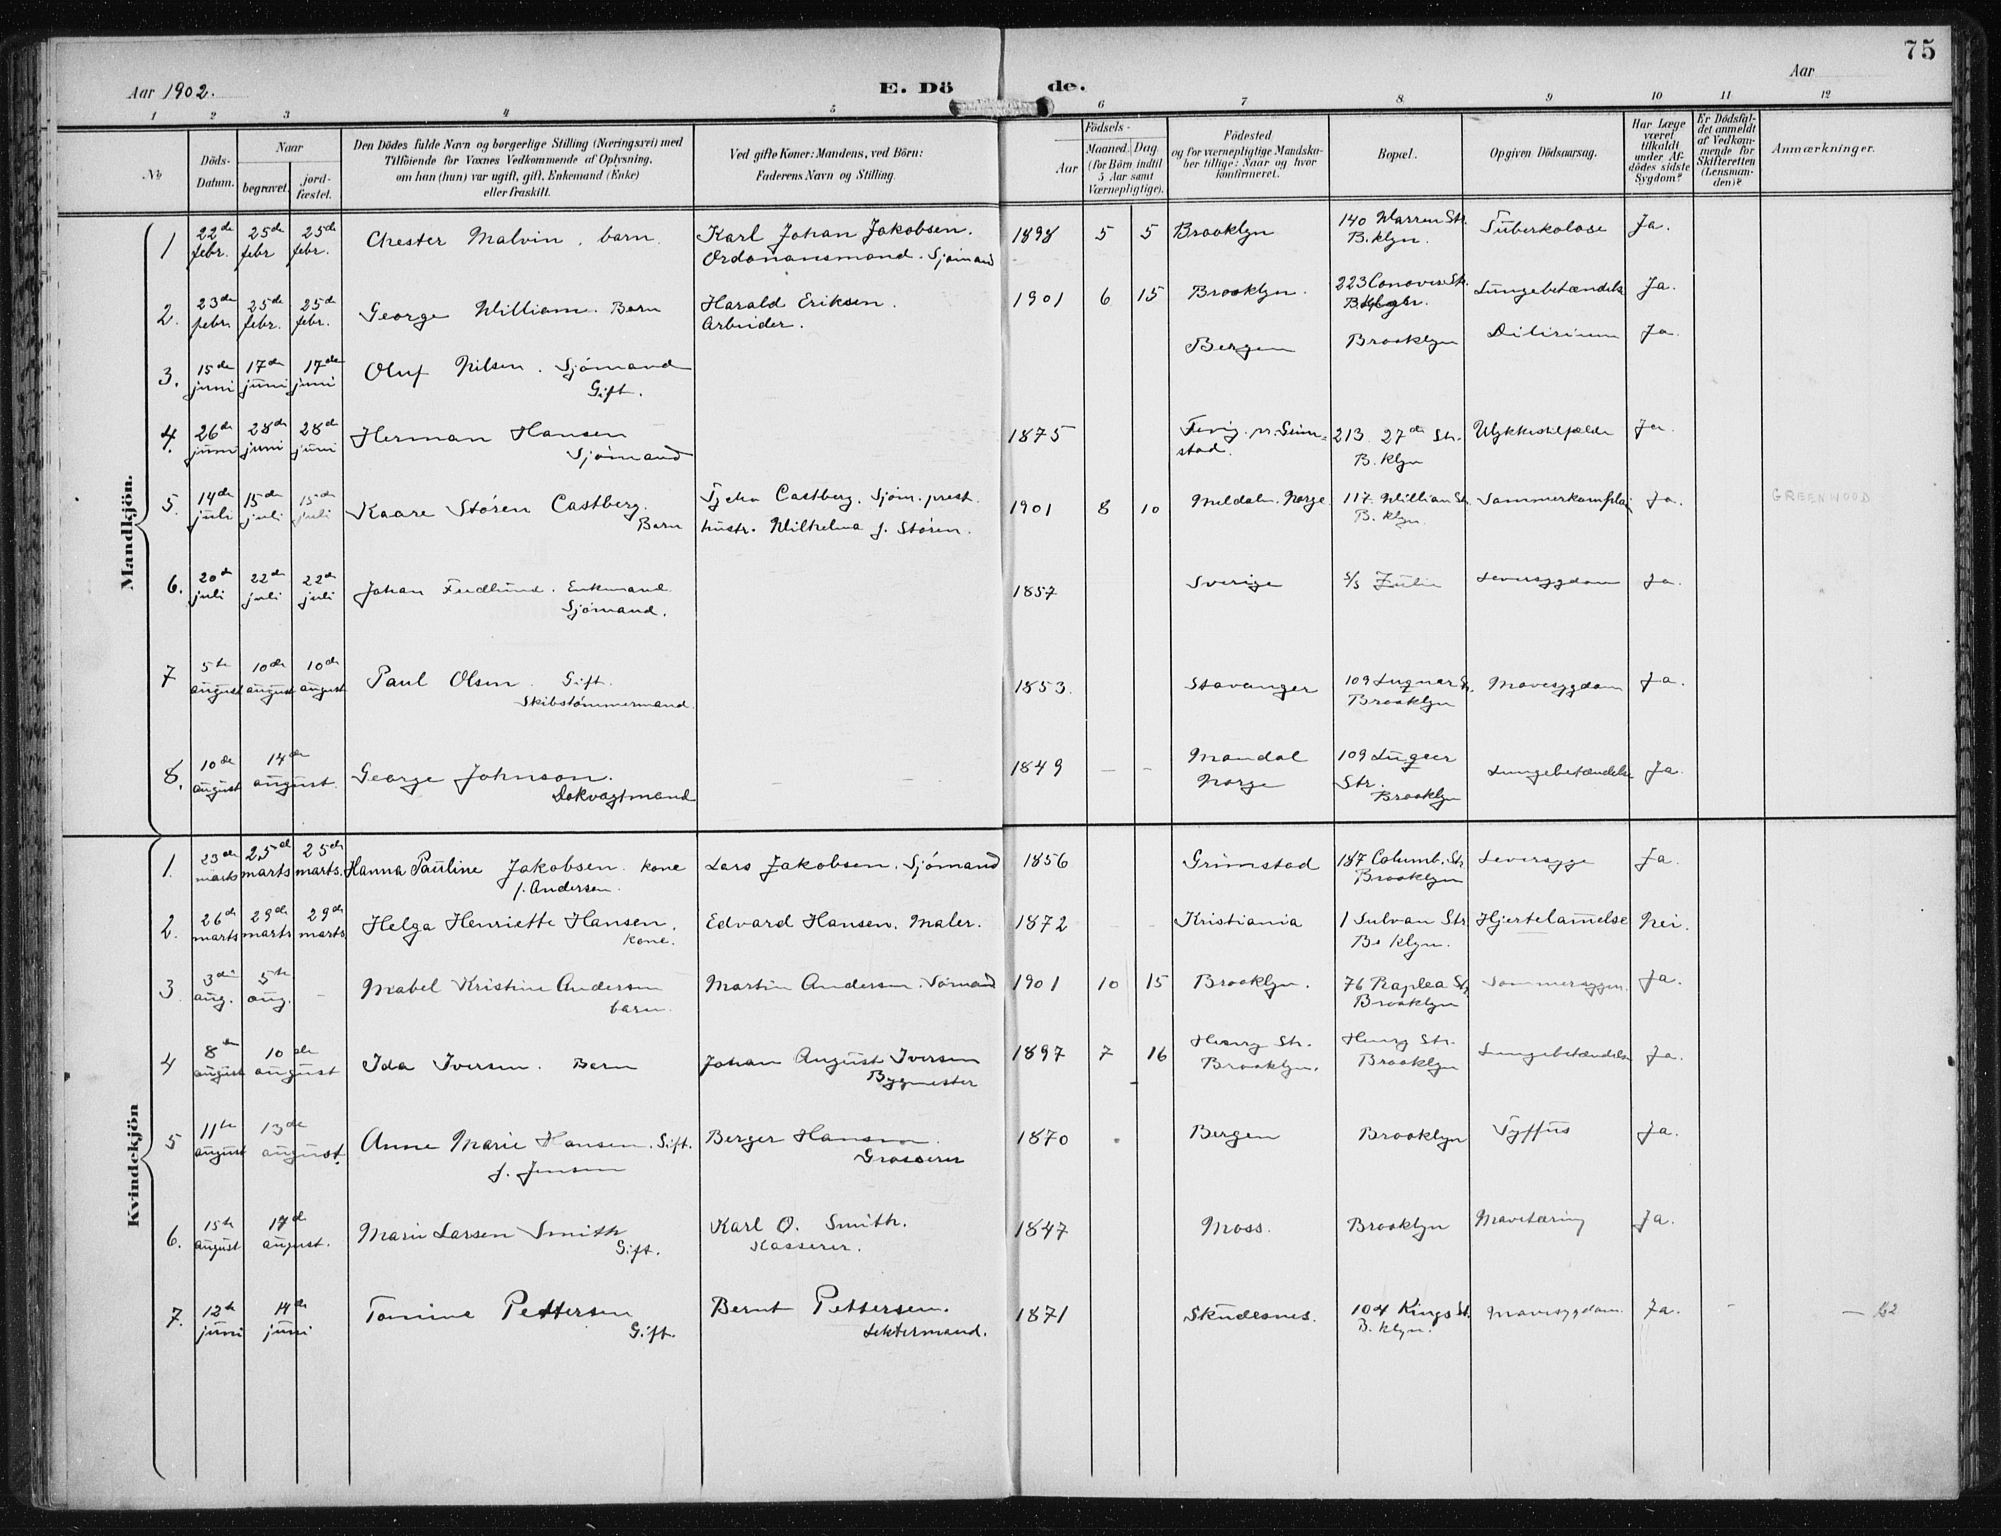 75
Aar 1902.
E. Dö de.
Aar
1 2 3 4 5 6 7 8. 9 10 11 12
№
Döds-Datum.
Naar
begravet.
jord-fæstet.
Den Dödes fulde Navn og borgerlige Stilling (Næringsvei) med
Tilföiende for Voxnes Vedkommende af Oplysning,
om han (hun) var ugift, gift, Enkemand (Enke)
eller fraskilt.
Ved gifte Koner: Mandens, ved Börn:
Faderens Navn og Stilling.
Födsels-
Aar
Maaned. Dag.
(for Börn indtil
5 Aar samt
Værnepligtige).
Födested
og for værnepligtige Mandska-
ber tillige: Naar og hvor
konfirmeret.
Bopæl.
Opgiven Dödsaarsag.
Har Læge
været
tilkaldt
under Af-
dödes sidste
Sygdom?
Er Dödsfal-
det anmeldt
af Vedkom-
mende for
Skifteretten
(Lensman-
den)?
Anmærkninger.
Mandkjön.
1 22de febr. 25de febr 25de febr. Chester Malvin. barn. Karl Johan Jakobsen. 1898 5 5 Brooklyn 140 Warren Str. B.klyn. Tüberkolose Ja.
Ordonansmand. Sjømand
2. 23de febr. 25de febr. 25de febr. George William. Barn Harald Eriksen. 1901 6 15 Brooklyn. 223 Conover Str. Lungebetændelse Ja.
Arbeider.
3. 15de juni 17de juni 17de juni Oluf Nilsen. Sjømand Bergen Brooklyn Dilirium Ja.
Gift.
4. 26de juni 28de juni 28de juni Herman Hansen 1875 Fevig pr. Grim-stad. 213 27de Str. B.klyn Ulykkestilfælde Ja.
Sjømand
5. 14de juli 15de juli 15de juli Kaare Støren Castberg. Tycho Castberg. Sjøm.prest. 1901 8 10 Meldalen. Norge 117 William Str. B.klyn. Sommerkomplai Ja. GREENWOOD
Barn hustr. Wilhelma f. Støren.
6. 20de juli 22de juli 22de juli Johan Fredlund. Enkmand 1857 Sverige S/S Zulia Leversygdom Ja.
Sjømand.
7 5te august 10de august 10de august Paul Olsen. Gift. 1853. Stavanger 109 Luquer Str. Brooklyn Mavesygdom Ja.
Skibstømmermand.
8. 10de august 14de august. George Johnson. – – 1849 – – Mandal Norge 109 Luquer Str. Brooklyn Lungebetændelse Ja.
Dokvagtmand
Kvindekjön
1. 23de marts 25de marts 25de marts. Hanna Pauline Jakobsen. kone Lars Jakobsen. Sjømand 1856 Grimstad 187 Columb. Str. Brooklyn Leversyge Ja.
f. Andersen.
2. 26de marts 29de marts 29de marts Helga Henriette Hansen. Edvard Hansen. Maler. 1872 – – Kristiania 1 Sulvan Str. B.klyn. Hjertelammelse Nei.
kone.
3 3de aug. 5te aug. – Mabel Kristine Andersen Martin Andersen. Sømand 1901 10 15 Brooklyn. 76 Raplea Str. Brooklyn Sommersygen. Ja.
barn.
4 8de august 10de august Ida Iversen. Barn Johan August Iversen 1897 7 16 Henry Str. Brooklyn. Henry Str. Brooklyn Lungebetændelse Ja.
Bygmester
5 11te august 13de august. Anne Marie Hansen. Gift. Berger Hansen. 1870 Bergen Brooklyn Tyffus Ja.
f. Jensen Grosserer
6. 15te august 17de august. Marie Larsen Smith Karl O. Smith. 1847 Moss. Brooklyn Mavetæring Ja.
Gift. Kasserer.
7. 12te juni 14de juni Tomine Pettersen Bernt Pettersen. 1871 Skudesnes. 104 Kings St. B.klyn. Mavesygdom. Ja. – –
Gift. Lektermand.